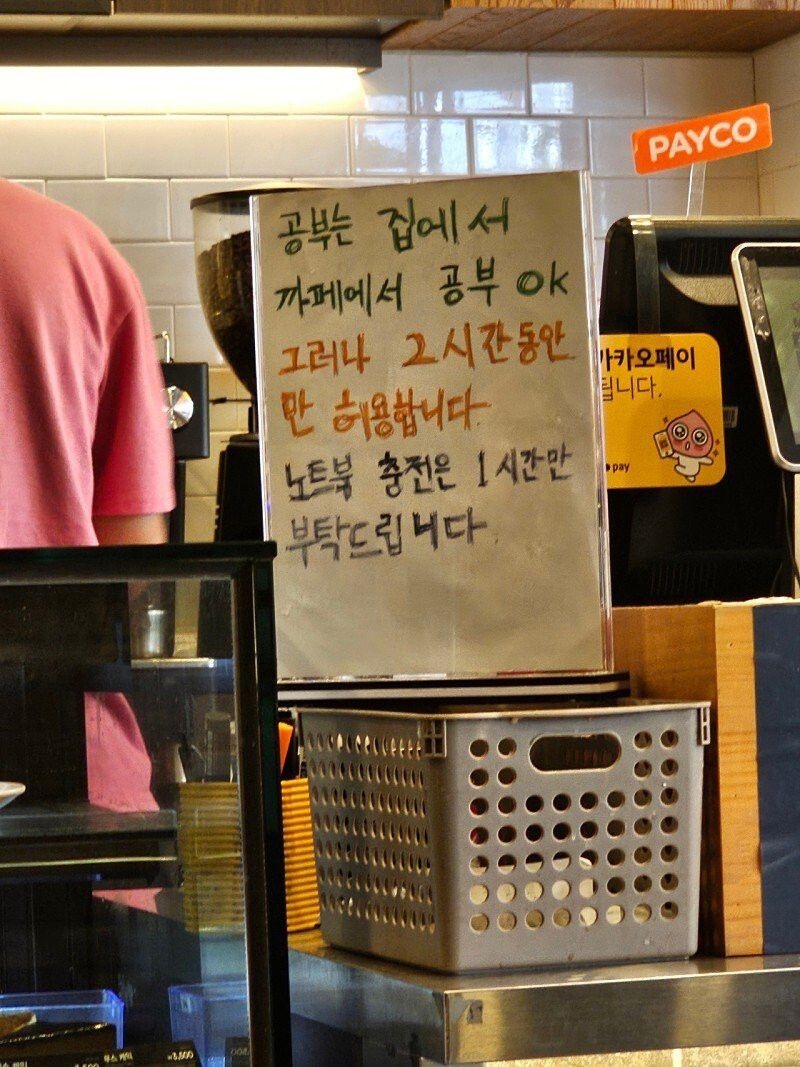 PAYCO
공부는 집에서
까페에서 공부 OK
그러나 2시간동안
만 허용합니다.
노트북 충전은 1시간만
부탁드립니다
카카오페이
됩니다.
pay